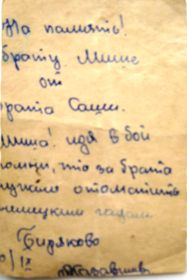 На память!
брату Мише
от
брата Саши.
Миша! идя в бой
помни, что за брата
нужно отомстить
немецким гадам
Бирюково
/IX